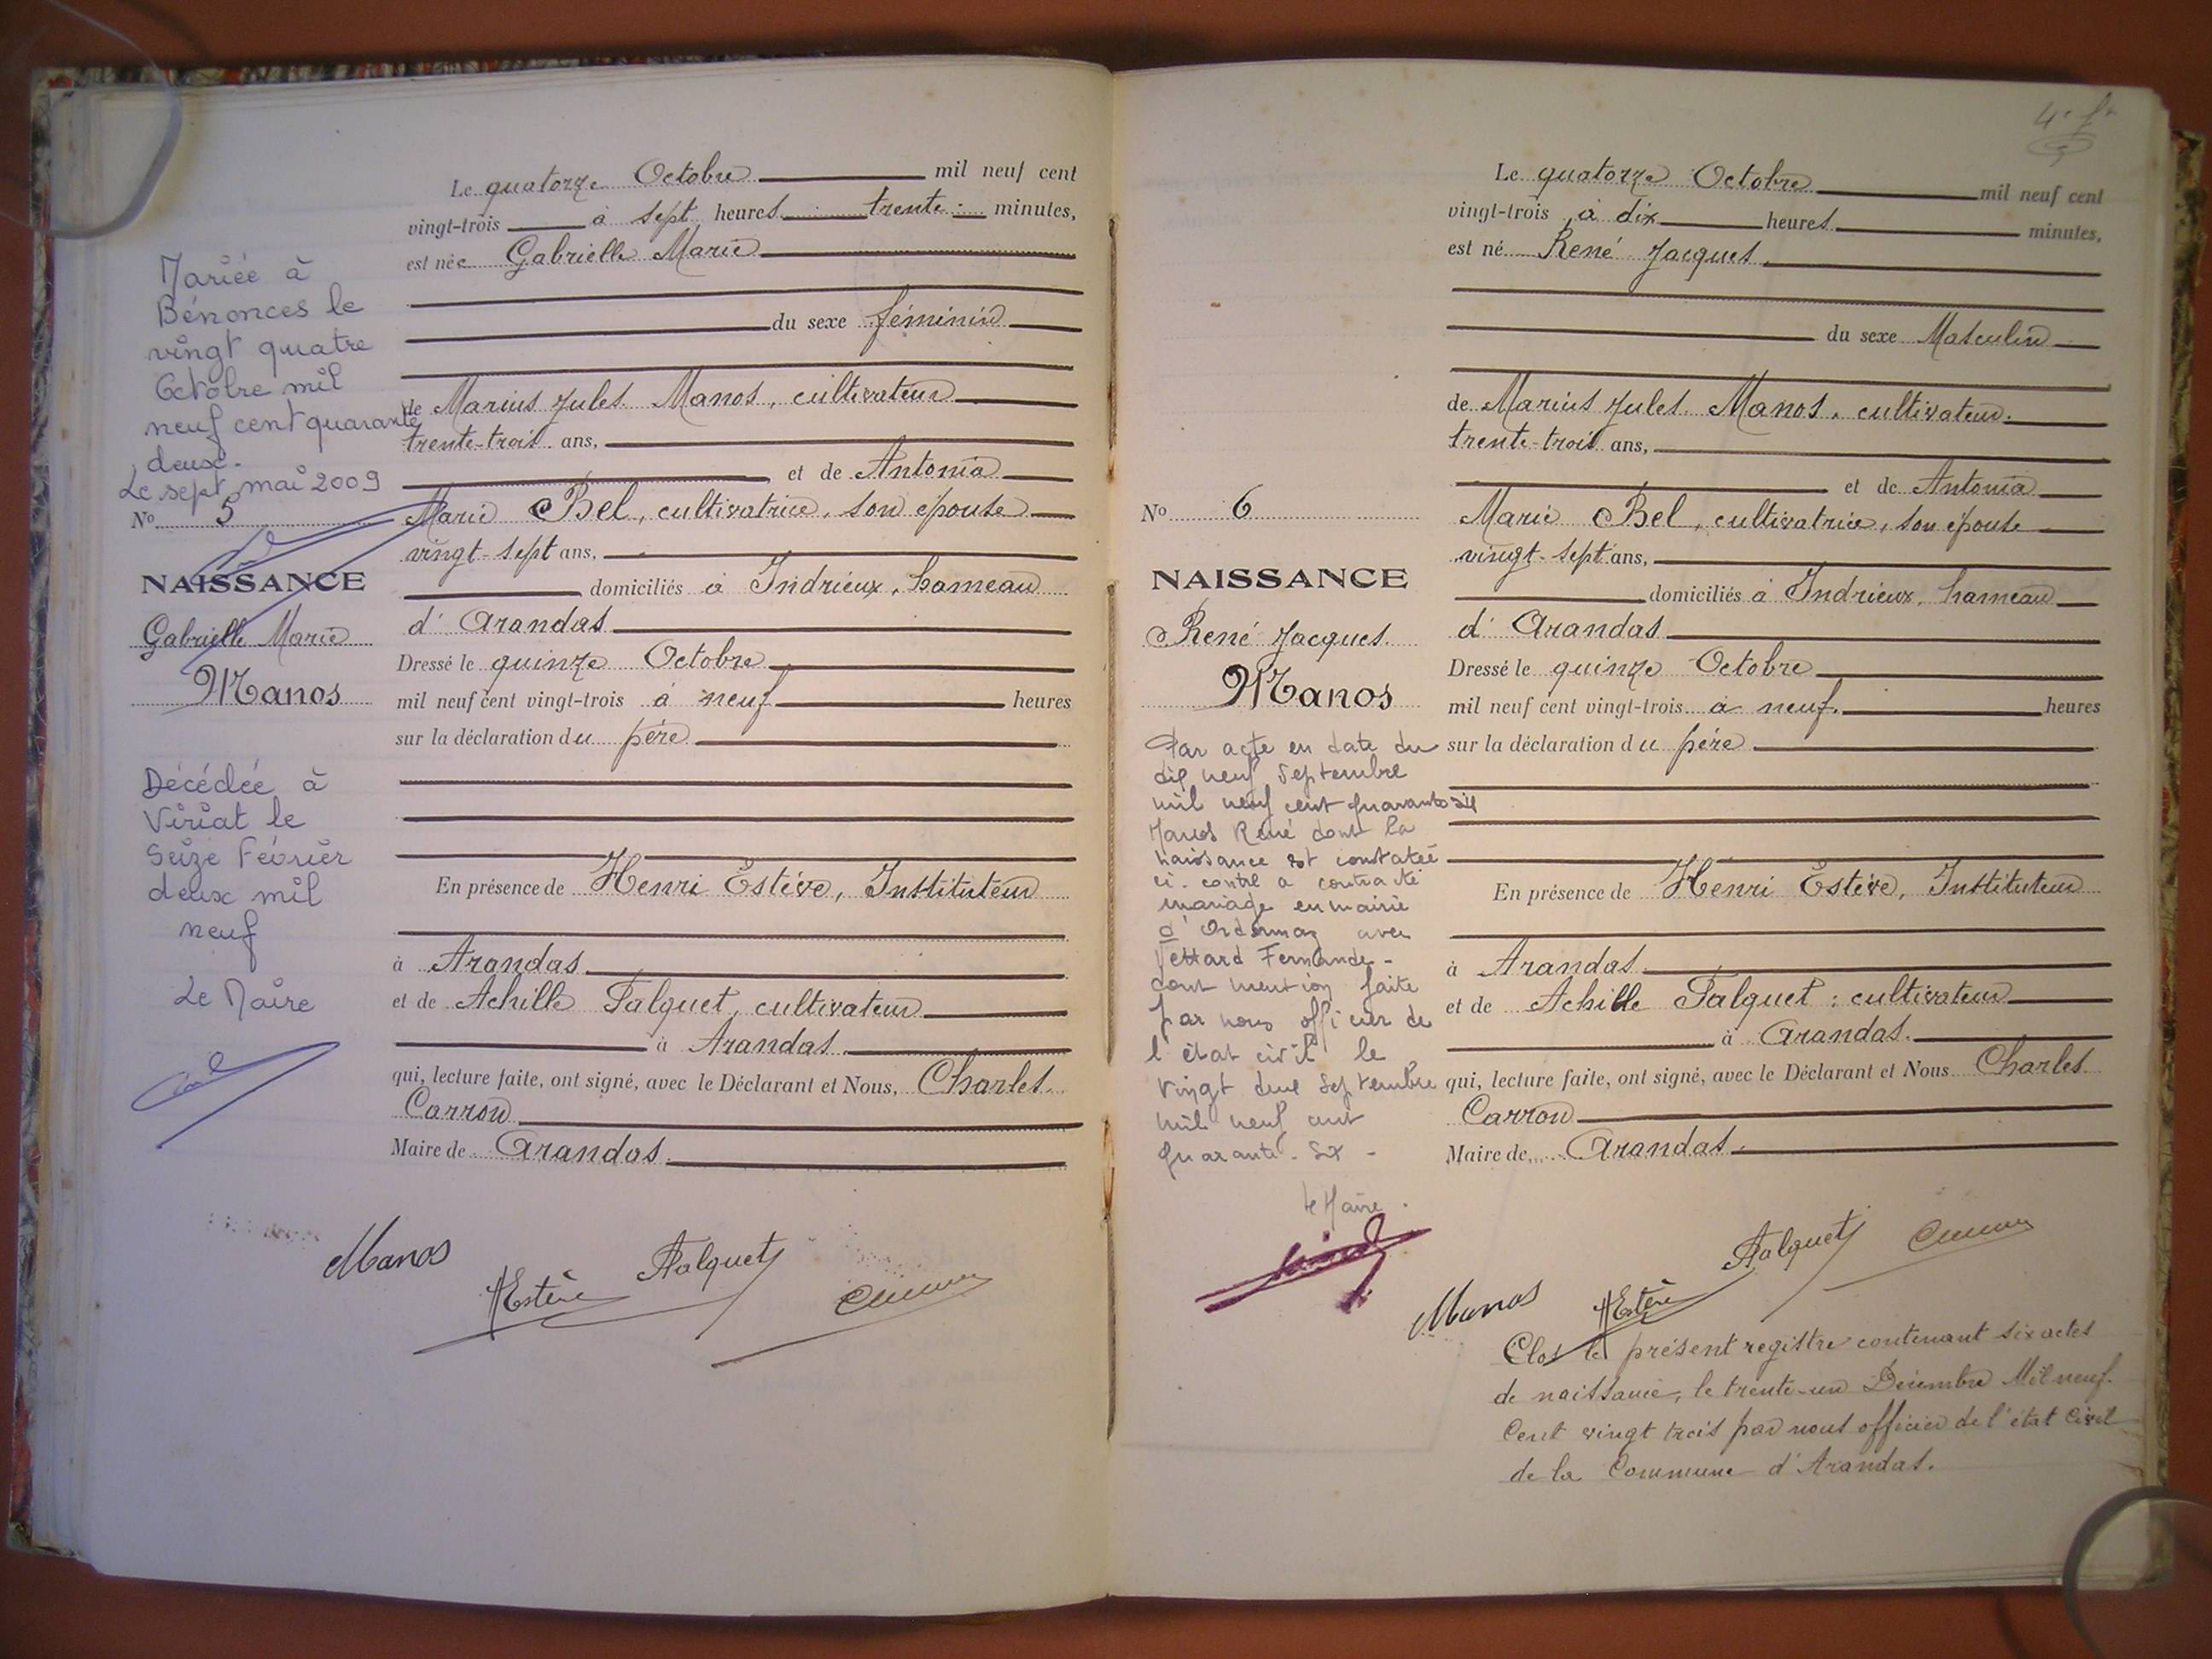 Le quatorze Octobre mil neuf cent
vingt-trois à sept heures trente minutes,
est née Gabrielle Marie
du sexe féminin
de Marius Jules Manos, cultivateur
trente-trois ans,
et de Antonia
Marie Bel, cultivatrice, son épouse
vingt-sept ans,
domiciliés à Indrieux, hameau
d'Arandas
Dressé le quinze Octobre
mil neuf cent vingt-trois à neuf heures
sur la déclaration du père
En présence de Henri Estève, Instituteur
à Arandas
et de Achille Falquet, cultivateur
à Arandas
qui, lecture faite, ont signé, avec le Déclarant et Nous, Charles
Carron
Maire de Arandas
Manos
HEstève
AFalquet
Mariée à
Bénonces le
vingt quatre
Octobre mil
neuf cent quarante
deux.
Le sept mai 2009
No 5
NAISSANCE
Gabrielle Marie
Manos
Décédée à
Viriat le
Seize Février
deux mil
neuf
Le Maire
Le quatorze Octobre mil neuf cent
vingt-trois à dix heures minutes,
est né René Jacques
du sexe Masculin
de Marius Jules Manos, cultivateur.
trente-trois ans,
et de Antonia
Marie Bel, cultivatrice, son épouse
vingt-sept ans,
domiciliés à Indrieux, hameau
d'Arandas
Dressé le quinze Octobre
mil neuf cent vingt-trois à neuf. heures
sur la déclaration du père
En présence de Henri Estève, Instituteur
à Arandas
et de Achille Falquet, cultivateur
à Arandas.
qui, lecture faite, ont signé, avec le Déclarant et Nous Charles
Carron
Maire de Arandas.
No 6
NAISSANCE
René Jacques
Manos
Par acte en date du
dix neuf Septembre
mil neuf cent quarante six
Manos René dont la
naissance est constatée
ci-contre a contracté
mariage en mairie
d'Ordonnaz avec
Vettard Fernande-
dont mention faite
par nous officier de
l'état civil le
vingt deux Septembre
mil neuf cent
quarante-six-
le Maire.
Manos
HEstève
AFalquet
Clos le présent registre contenant six actes
de naissance, le trente-un Décembre Mil neuf
Cent vingt trois par nous officier de l'état Civil
de la Commune d'Arandas.